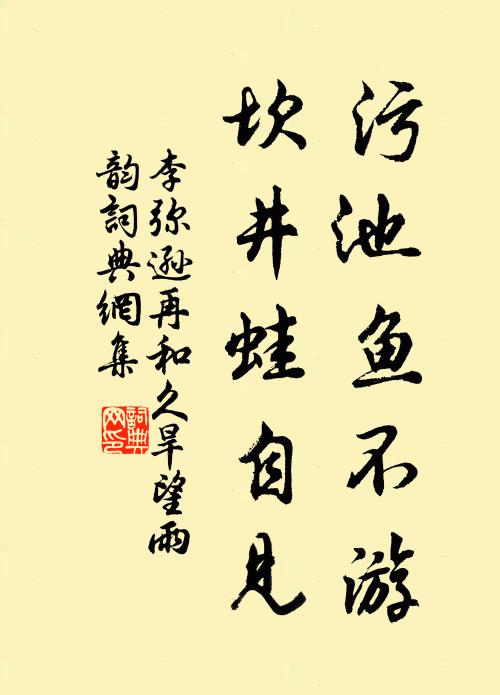 污池鱼不游
坎井蛙自見
李弥遜再和久旱望雨
韵詞典網集
詞典网印